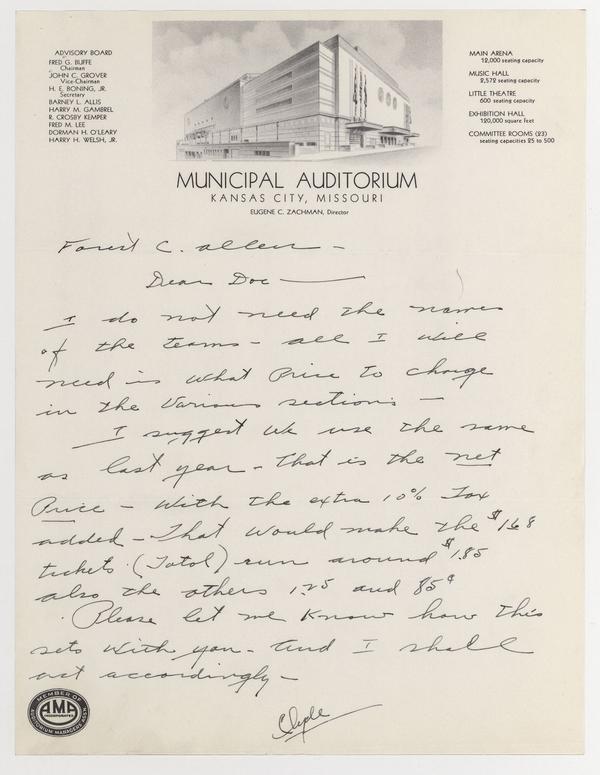 ADVISORY BOARD
FRED G. BUFFE
Chairman
JOHN C. GROVER
Vice-Chairman
H. E. BONING, JR.
Secretary
BARNEY L. ALLIS
HARRY M. GAMBREL
R. CROSBY KEMPER
FRED M. LEE
DORMAN H. O'LEARY
HARRY H. WELSH, JR.
MAIN ARENA
12,000 seating capacity
MUSIC HALL
2,572 seating capacity
LITTLE THEATRE
600 seating capacity
EXHIBITION HALL
120,000 square feet
COMMITTEE ROOMS (23)
seating capacities 25 to 500
MUNICIPAL AUDITORIUM
KANSAS CITY, MISSOURI
EUGENE C. ZACHMAN, Director
Forest C. Allen -
Dear Doc —
I do not need the names
of the teams - all I will
need is what Price to charge
in the various sections —
I suggest we use the same
as last year - That is the net
Price - With the extra 10% Tax
added - That would make the $1.68
tickets (Total) run around $1.85
also the others 1.25 and 85¢
Please let me know how this
sets with you - And I shall
act accordingly -
Clyde
MEMBER OF
AMA
INCORPORATED
AUDITORIUM MANAGERS ASS'N